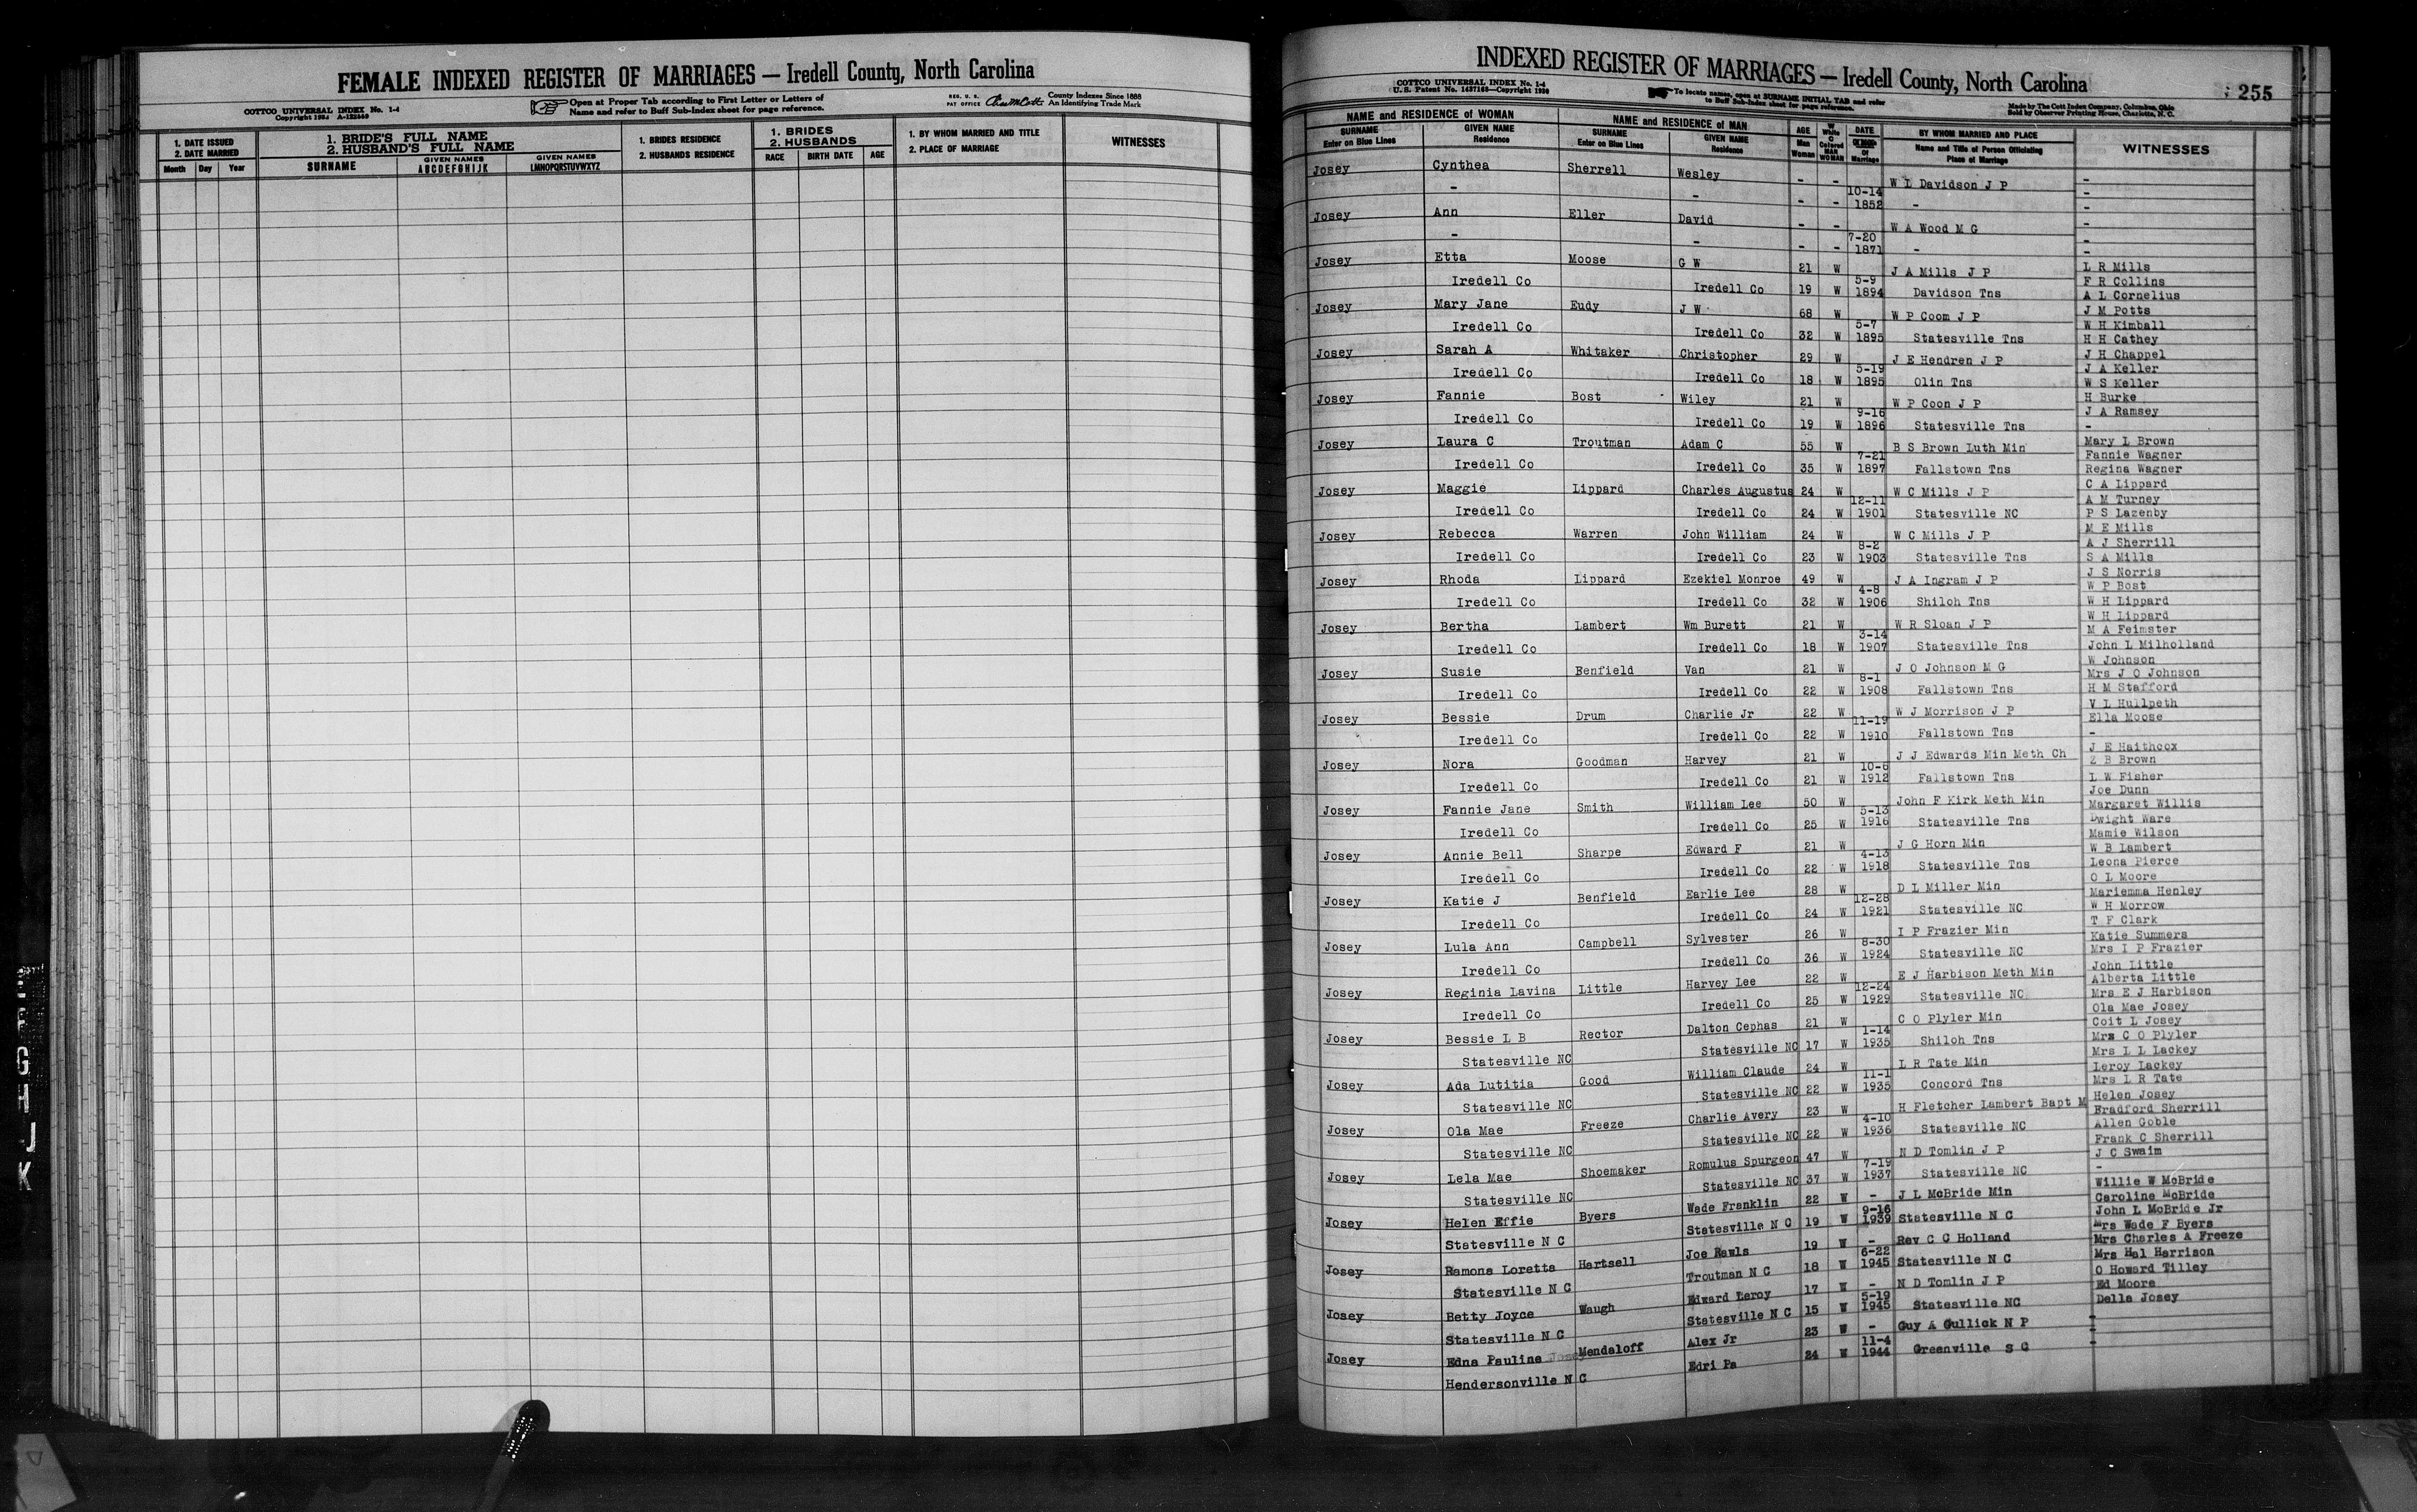 FEMALE INDEXED REGISTER OF MARRIAGES — Iredell County, North Carolina
COTTCO UNIVERSAL INDEX No. 1-4
Open at Proper Tab according to First Letter or Letters of
Name and refer to Buff Sub-Index sheet for page reference.
REG. U. S. PAT OFFICE
County Indexes Since 1888
An Identifying Trade Mark
1. DATE ISSUED
2. DATE MARRIED
Month Day Year
1. BRIDE'S FULL NAME
2. HUSBAND'S FULL NAME
SURNAME
GIVEN NAMES ABCDEFGHIJK
GIVEN NAMES LMNOPQRSTUVWXYZ
1. BRIDES RESIDENCE
2. HUSBANDS RESIDENCE
1. BRIDES
2. HUSBANDS
RACE BIRTH DATE AGE
1. BY WHOM MARRIED AND TITLE
2. PLACE OF MARRIAGE
WITNESSES
G
H
J
K
INDEXED REGISTER OF MARRIAGES — Iredell County, North Carolina
255
COTTCO UNIVERSAL INDEX No. 1-4
U. S. Patent No. 1437168—Copyright 1930
To locate names, open at SURNAME INITIAL TAB and refer
to Buff Sub-Index sheet for page reference.
Made by The Cott Index Company, Columbus, Ohio
Sold by Observer Printing House, Charlotte, N. C.
NAME and RESIDENCE of WOMAN
SURNAME
Enter on Blue Lines
GIVEN NAME
Residence
NAME and RESIDENCE of MAN
SURNAME
Enter on Blue Lines
GIVEN NAME
Residence
AGE Man Woman
W White C Colored MAN WOMAN
DATE Of Marriage
BY WHOM MARRIED AND PLACE
Name and Title of Person Officiating
Place of Marriage
WITNESSES
Josey Cynthea Sherrell Wesley - - W L Davidson J P -
- - - - 10-14 1852 - -
-
Josey Ann Eller David - - W A Wood M G -
- - - - 7-20 1871 - -
-
Josey Etta Moose G W 21 W J A Mills J P L R Mills
Iredell Co Iredell Co 19 W 5-9 1894 Davidson Tns F R Collins
A L Cornelius
Josey Mary Jane Eudy J W 68 W W P Coom J P J M Potts
Iredell Co Iredell Co 32 W 5-7 1895 Statesville Tns W H Kimball
H H Cathey
Josey Sarah A Whitaker Christopher 29 W J E Hendren J P J H Chappel
Iredell Co Iredell Co 18 W 5-19 1895 Olin Tns J A Keller
W S Keller
Josey Fannie Bost Wiley 21 W W P Coon J P H Burke
Iredell Co Iredell Co 19 W 9-16 1896 Statesville Tns J A Ramsey
-
Josey Laura C Troutman Adam C 55 W B S Brown Luth Min Mary L Brown
Iredell Co Iredell Co 35 W 7-21 1897 Fallstown Tns Fannie Wagner
Regina Wagner
Josey Maggie Lippard Charles Augustus 24 W W C Mills J P C A Lippard
Iredell Co Iredell Co 24 W 12-11 1901 Statesville NC A M Turney
P S Lazenby
Josey Rebecca Warren John William 24 W W C Mills J P M E Mills
Iredell Co Iredell Co 23 W 8-2 1903 Statesville Tns A J Sherrill
S A Mills
Josey Rhoda Lippard Ezekiel Monroe 49 W J A Ingram J P J S Norris
Iredell Co Iredell Co 32 W 4-8 1906 Shiloh Tns W P Bost
W H Lippard
Josey Bertha Lambert Wm Burett 21 W W R Sloan J P W H Lippard
Iredell Co Iredell Co 18 W 3-14 1907 Statesville Tns M A Feimster
John L Milholland
Josey Susie Benfield Van 21 W J O Johnson M G W Johnson
Iredell Co Iredell Co 22 W 8-1 1908 Fallstown Tns Mrs J O Johnson
H M Stafford
Josey Bessie Drum Charlie Jr 22 W W J Morrison J P V L Hullpeth
Iredell Co Iredell Co 22 W 11-19 1910 Fallstown Tns Ella Moose
-
Josey Nora Goodman Harvey 21 W J J Edwards Min Meth Ch J E Haithcox
Iredell Co Iredell Co 21 W 10-6 1912 Fallstown Tns Z B Brown
L W Fisher
Josey Fannie Jane Smith William Lee 50 W John F Kirk Meth Min Joe Dunn
Iredell Co Iredell Co 25 W 5-13 1916 Statesville Tns Margaret Willis
Dwight Ware
Josey Annie Bell Sharpe Edward F 21 W J G Horn Min Mamie Wilson
Iredell Co Iredell Co 22 W 4-13 1918 Statesville Tns W B Lambert
Leona Pierce
Josey Katie J Benfield Earlie Lee 28 W D L Miller Min O L Moore
Iredell Co Iredell Co 24 W 12-28 1921 Statesville NC Mariemma Henley
W H Morrow
Josey Lula Ann Campbell Sylvester 26 W I P Frazier Min T F Clark
Iredell Co Iredell Co 36 W 8-30 1924 Statesville NC Katie Summers
Mrs I P Frazier
Josey Reginia Lavina Little Harvey Lee 22 W E J Harbison Meth Min John Little
Iredell Co Iredell Co 25 W 12-24 1929 Statesville NC Alberta Little
Mrs E J Harbison
Josey Bessie L B Rector Dalton Cephas 21 W C O Plyler Min Ola Mae Josey
Statesville NC Statesville NC 17 W 1-14 1935 Shiloh Tns Coit L Josey
Mrs C O Plyler
Josey Ada Lutitia Good William Claude 24 W L R Tate Min Mrs L L Lackey
Statesville NC Statesville NC 22 W 11-1 1935 Concord Tns Leroy Lackey
Mrs L R Tate
Josey Ola Mae Freeze Charlie Avery 23 W H Fletcher Lambert Bapt M Helen Josey
Statesville NC Statesville NC 22 W 4-10 1936 Statesville NC Bradford Sherrill
Allen Goble
Josey Lela Mae Shoemaker Romulus Spurgeon 47 W N D Tomlin J P Frank C Sherrill
Statesville NC Statesville NC 37 W 7-19 1937 Statesville NC J C Swaim
-
Josey Helen Effie Byers Wade Franklin 22 W - J L McBride Min Willie W McBride
Statesville N C Statesville N C 19 W 9-16 1939 Statesville N C Caroline McBride
John L McBride Jr
Josey Ramona Loretta Hartsell Joe Rawls 19 W - Rev C C Holland Mrs Wade F Byers
Statesville N C Troutman N C 18 W 6-22 1945 Statesville N C Mrs Charles A Freeze
Mrs Hal Harrison
Josey Betty Joyce Waugh Edward Leroy 17 W - N D Tomlin J P O Howard Tilley
Statesville N C Statesville N C 15 W 5-19 1945 Statesville NC Ed Moore
Della Josey
Josey Edna Pauline Mendaloff Alex Jr 23 W - Guy A Gullick N P -
Hendersonville N C Edri Pa 24 W 11-4 1944 Greenville S C -
-